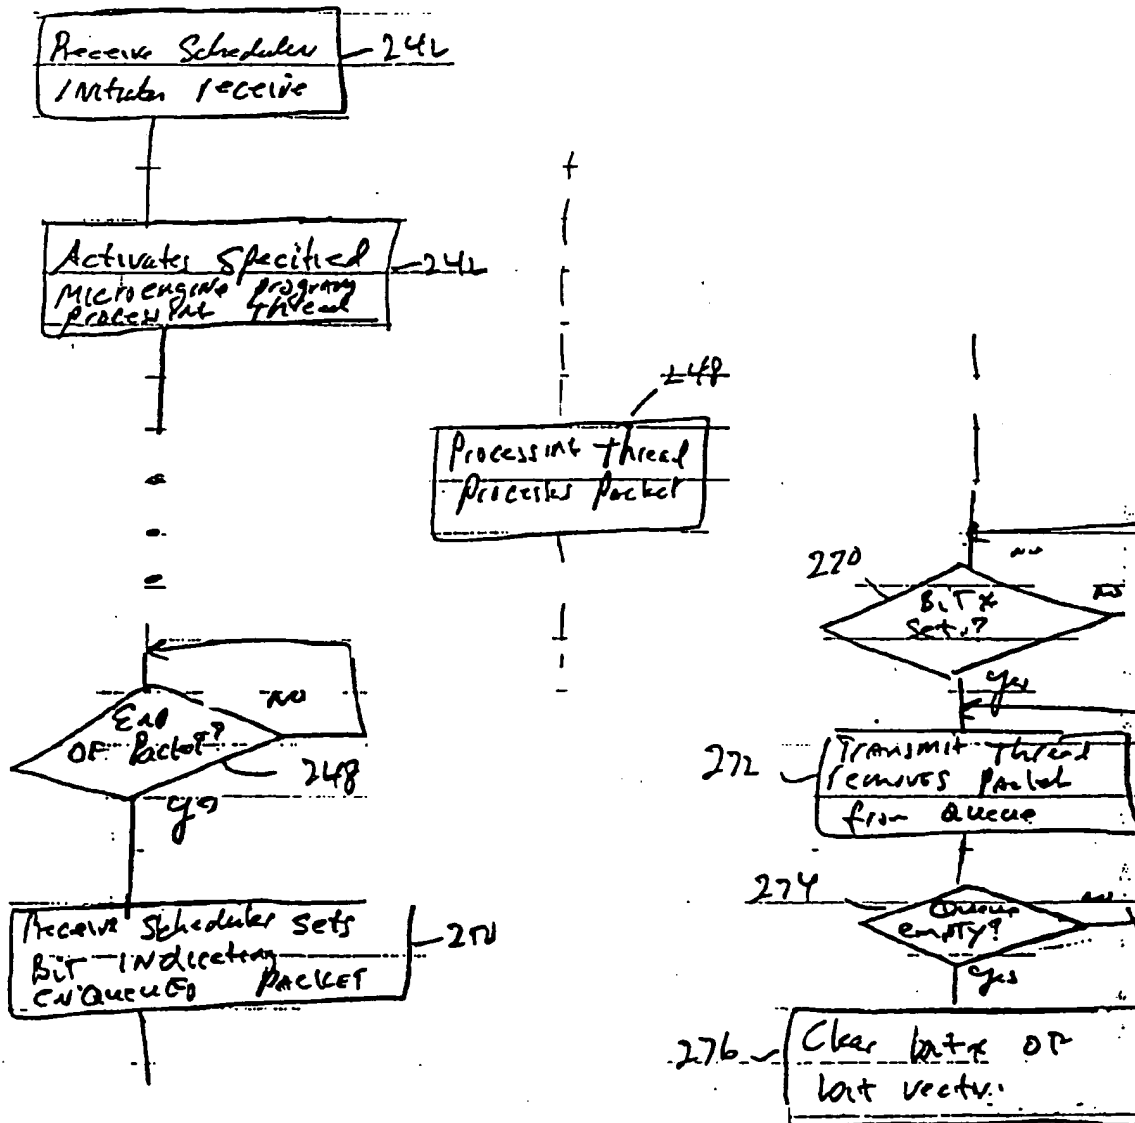 Receive Scheduler
Initiates receive
242
Activates Specified
Microengine program
processing thread
242
248
Processing thread
processes packet
End
OF Packet?
NO
248
yes
Receive Scheduler Sets
Bit Indicating
ENQUEUED PACKET
250
270
BiT x
Set?
no
no
yes
272
Transmit thread
removes packet
from Queue
274
Queue
empty?
no
yes
276
Clear bit x OF
bit vector.